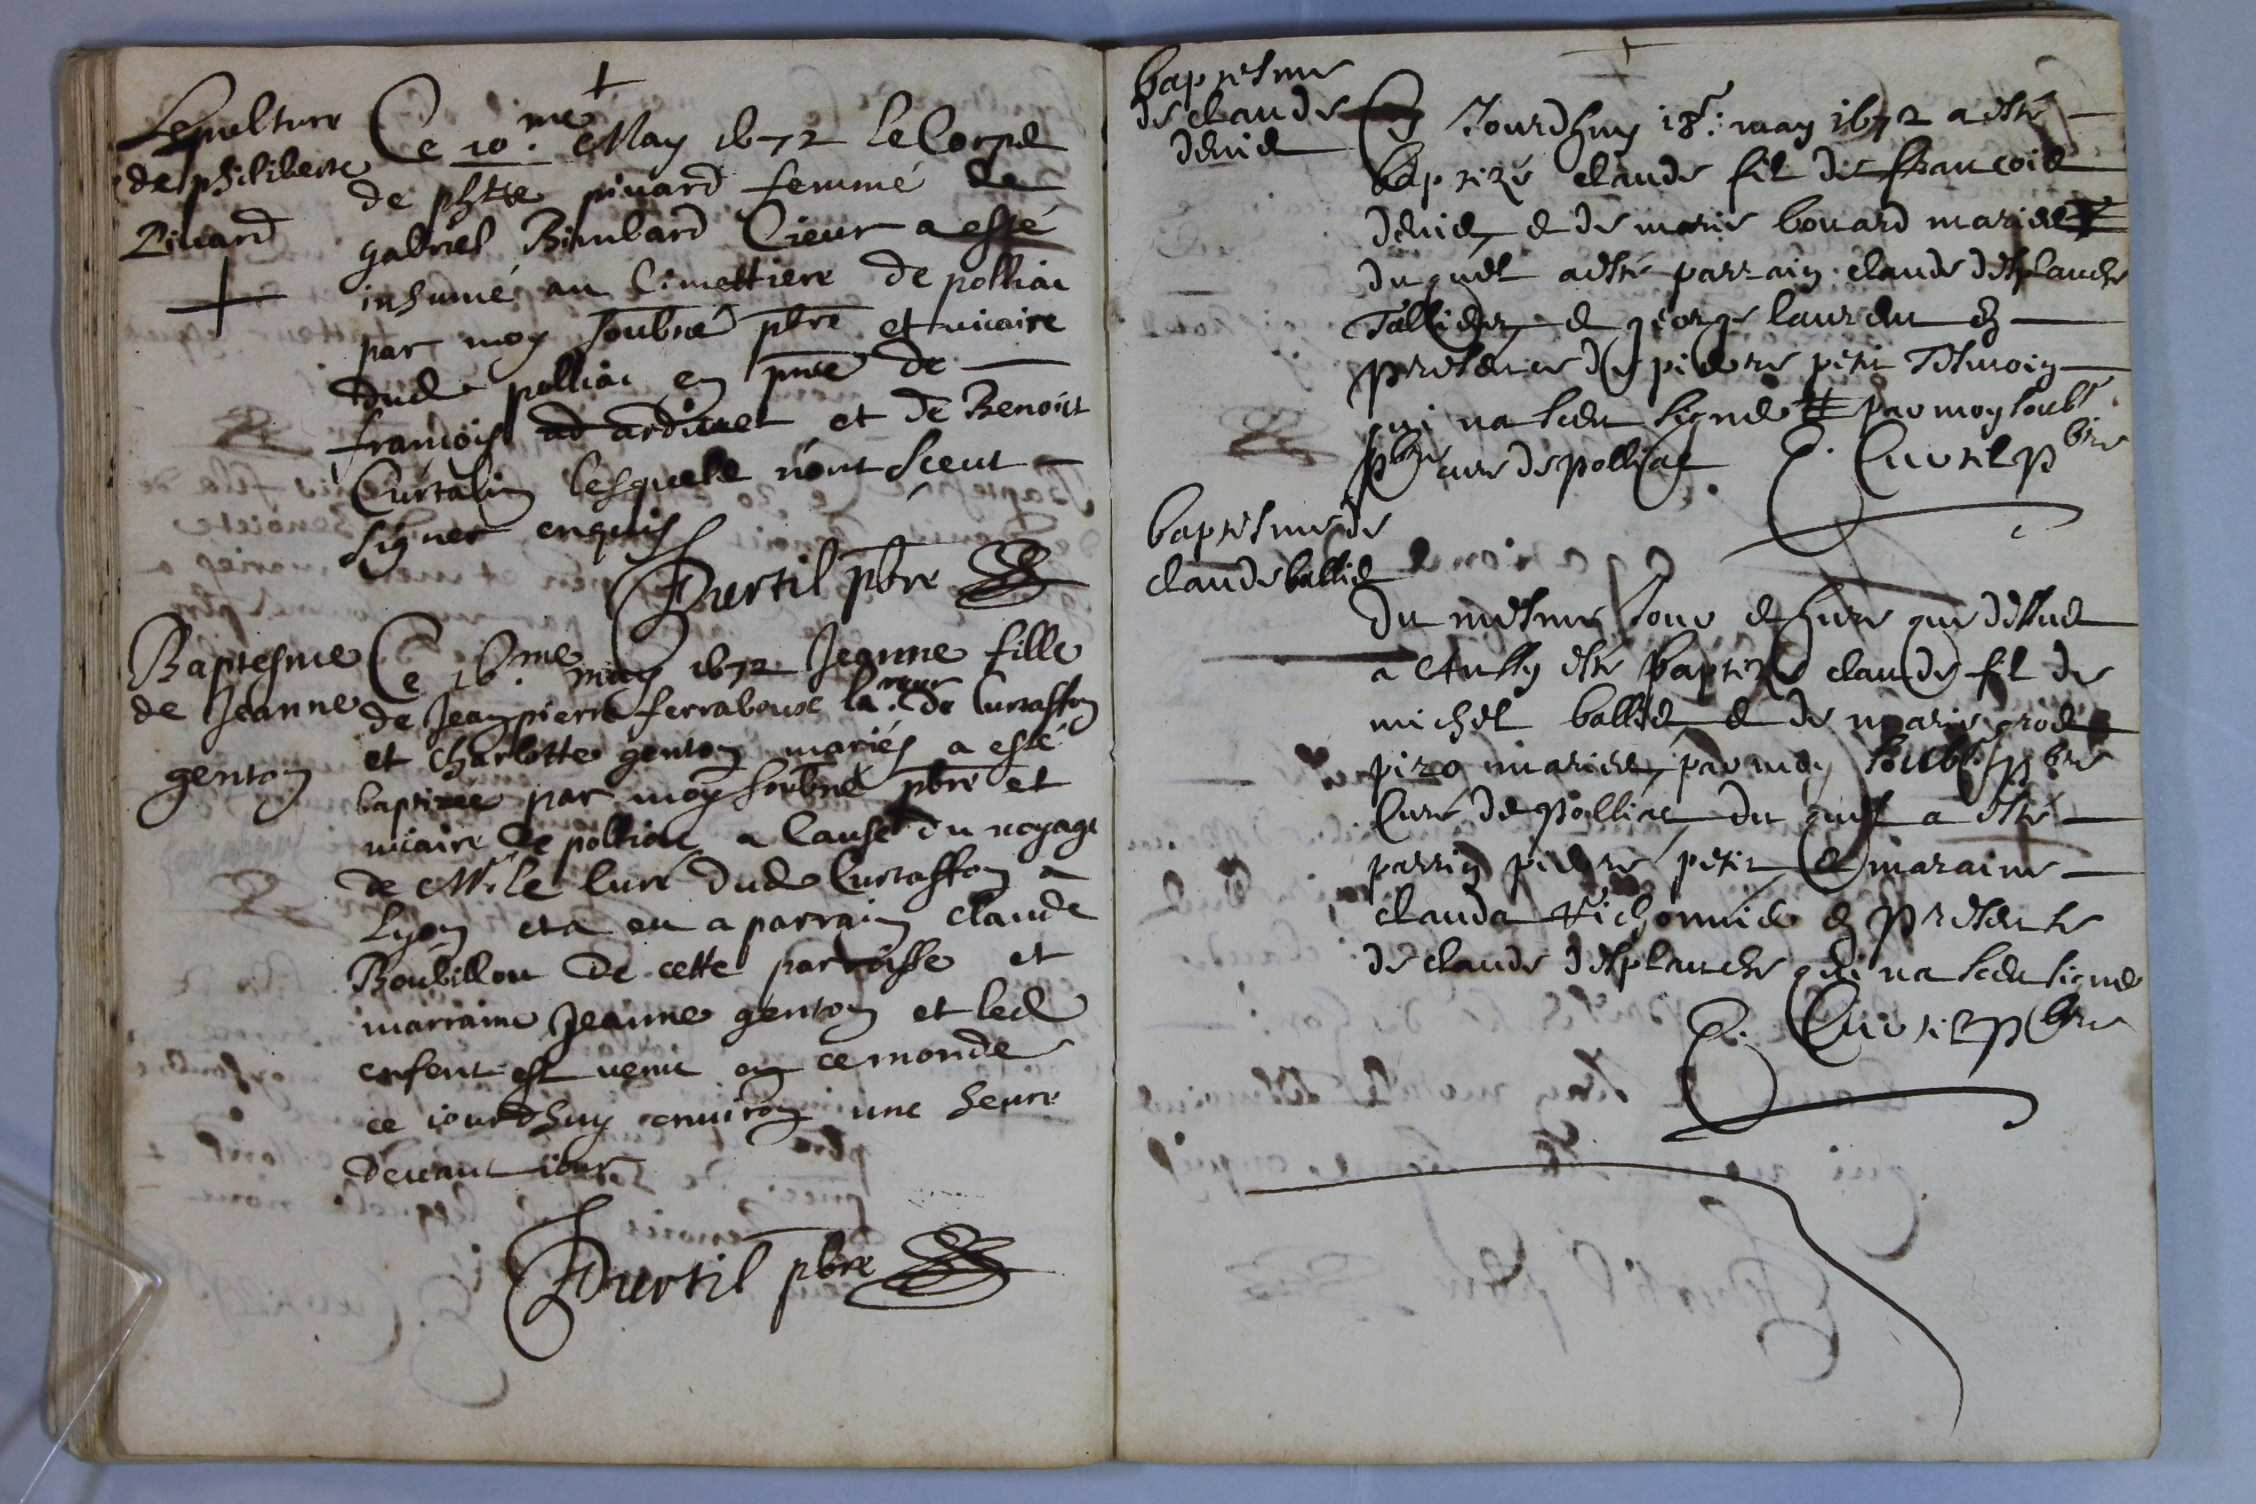 Sepulture
de philiberte
Pivard
Ce 10.me May 1672 le Corps
de phtte pivard femme de
gabriel Bimbard Cieur a esté
inhumé au Cimettiere de polliac
par moy soubné pbre et vicaire
dud polliac en pnce de
françois ardivet et de Benoist
Curtalin lesquels nont sceut
signer enquis
Durtil pbre
Baptesme
de Jeanne
genton
Ce 16.me may 1672 Jeanne fille
de Jeanpierre ferrabouse la.reur de Curtaffon
et charlotte genton mariés a esté
baptizée par moy soubné pbre et
vicaire de polliac a cause du voyage
de Mr le curé dud Curtaffon a
Lyon et a eu a parrain claude
Boubillon de cette parroisse et
marraine Jeanne genton et led
enfent est venu en ce monde
ce iourdhuy environ une heure
devant iour
Durtil pbre
baptesme
de claude
denis
Ce Jourdhuy 18e may 1672 a esté
baptizé claude fil de francois
denis, & de marie bouard maries #
duquel a esté parrain claude desplanche
Tallier, & george laurent en
presence de pierre petit Tesmoin
qui na sceu signe # par moy soubt
pbre cure de polliac C. Curtil pbre
baptesme de
claude ballie
du mesme Jour & heure que dessus
a Aussy esté baptizé claude fil de
michel ballie & de marie grod
piro maries, par moy soubt pbre
Curé de polliac, du quel a esté
parrin pierre petit & maraine
clauda Vichonnie en presence
de claude desplanche qui na sceu signe
C. Curtil pbre